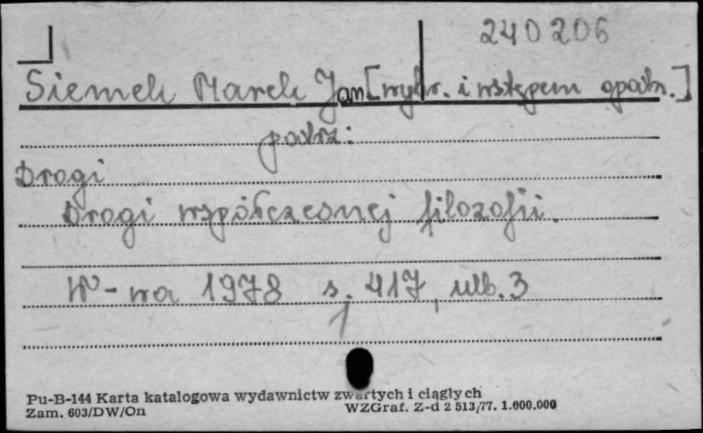 240206
Siemek Marek Jan [wybr. i wstępem opatrz.]
patrz:
Drogi
Drogi współczesnej filozofii.
W-wa 1978 s. 417, nlb. 3
1
Pu-B-144 Karta katalogowa wydawnictw zwartych i ciągłych
Zam. 603/DW/On WZGraf. Z-d 2 513/77. 1.600.000